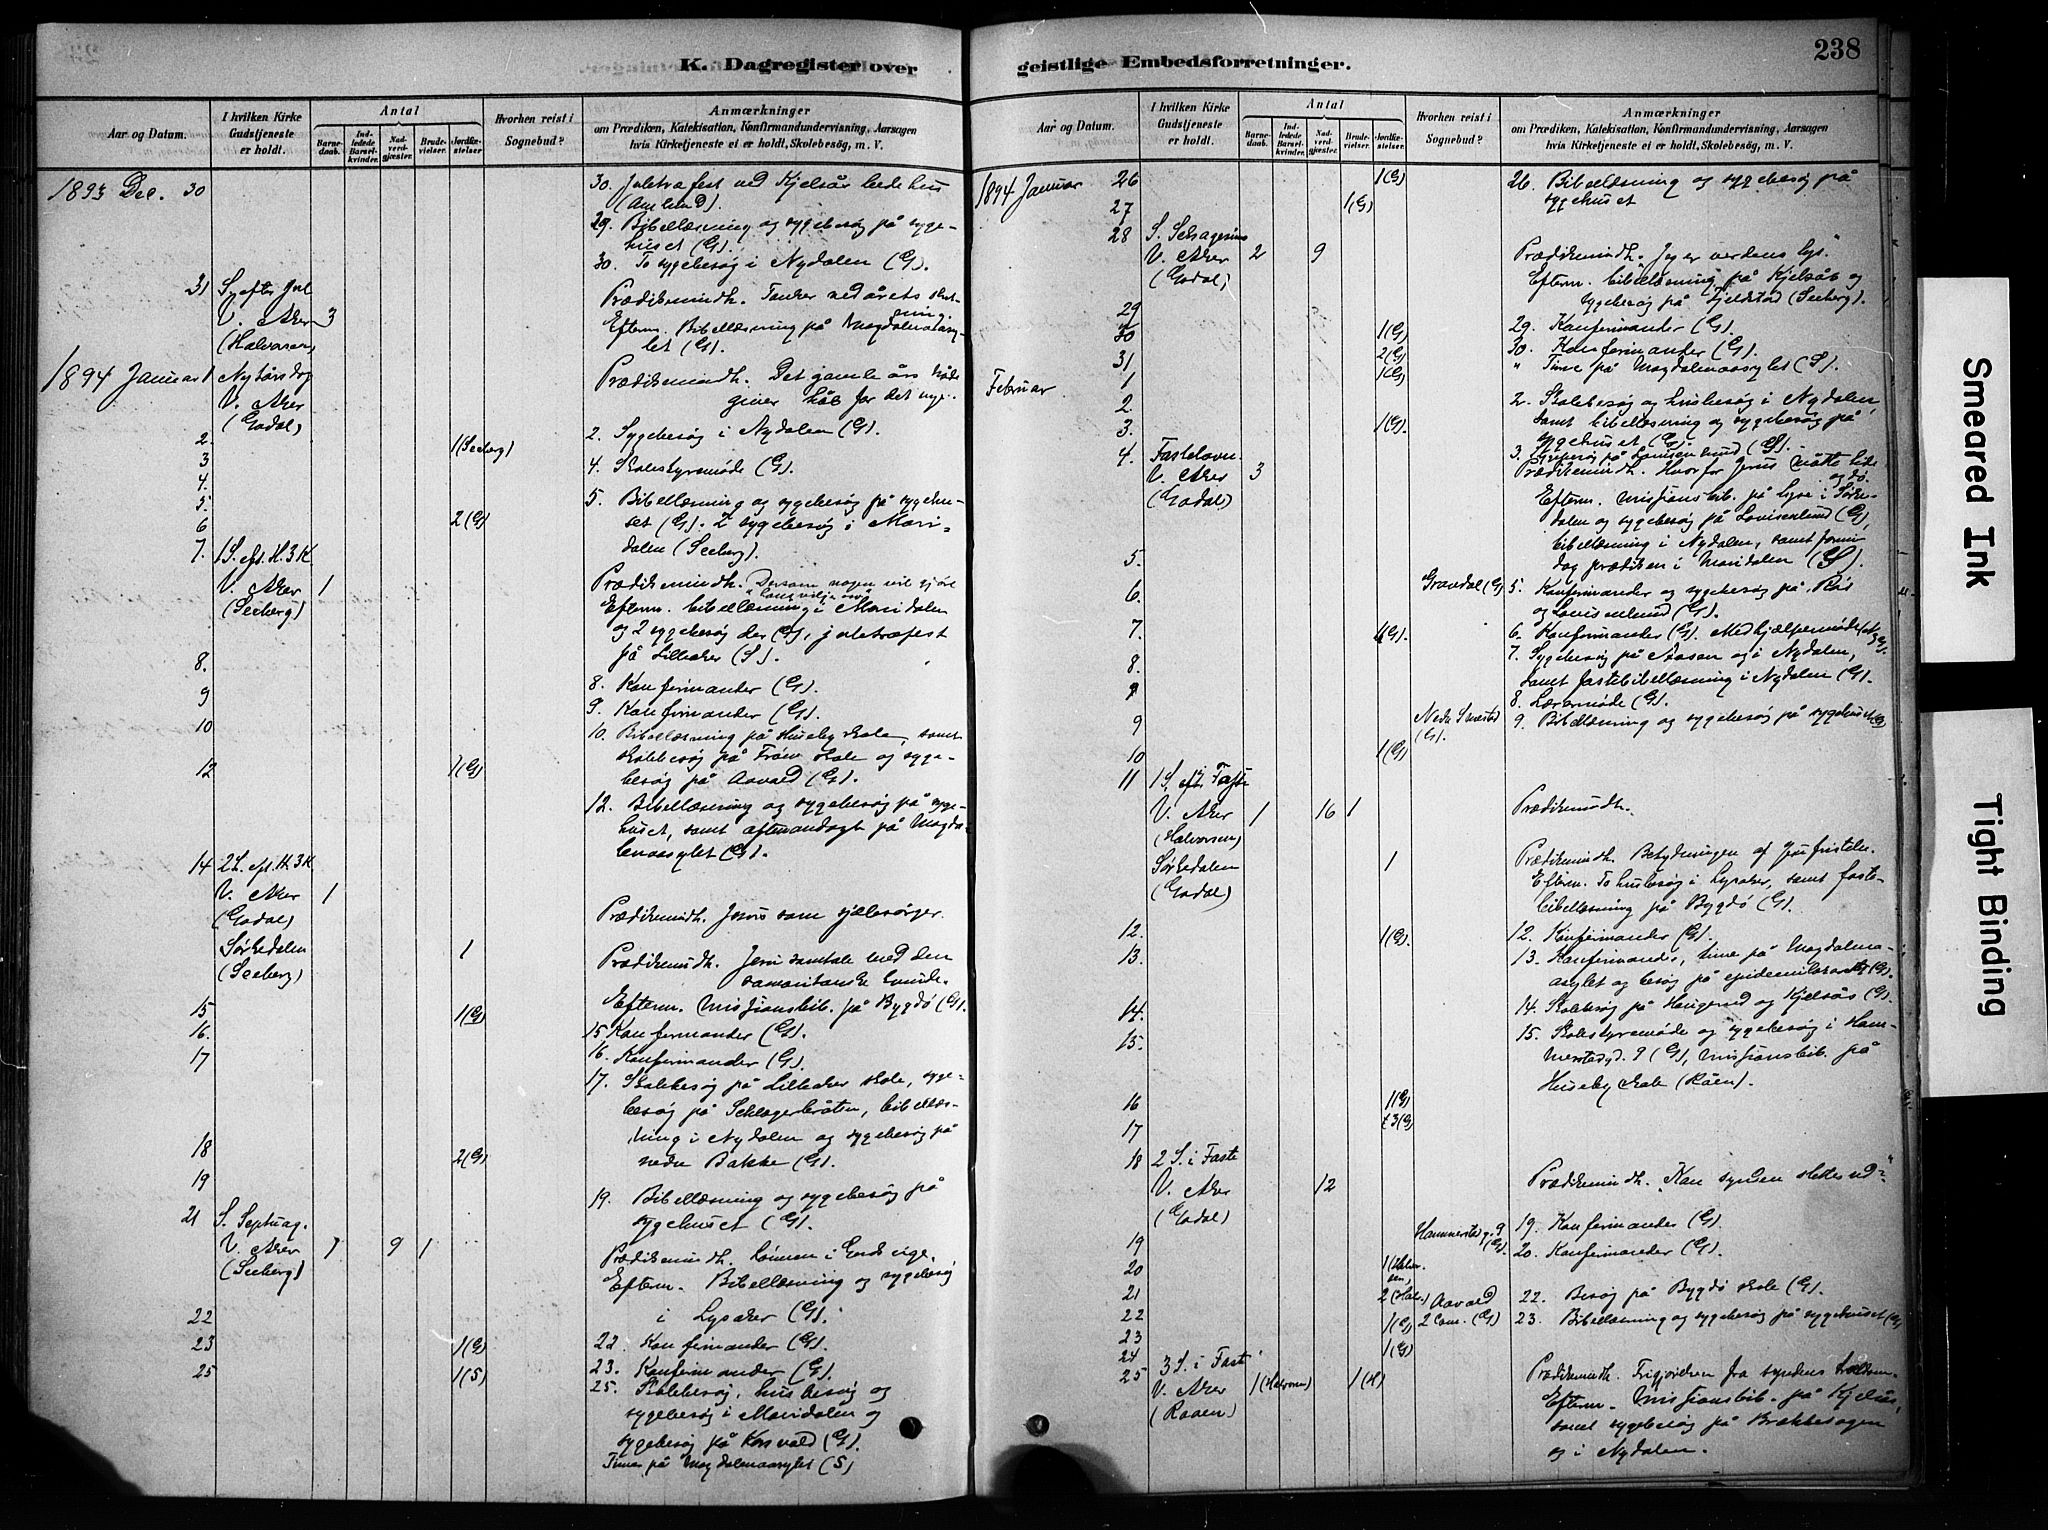 K. Dagregister over
Aar og Datum.
I hvilken Kirke Gudstjeneste er holdt.
Antal
Barnedaab.
Indledede Barselkvinder.
Nadverdgjester.
Brudevielser.
Jordfæstelser.
Hvorhen reist i Sognebud?
Anmærkninger
om Prædiken, Katekisation, Konfirmandundervisning, Aarsagen
hvis Kirketjeneste ei er holdt, Skolebesøg, m. V.
1893 Dec. 30
30. Juletræfest ved Kjelsås bedehus
29. Bibellæsning og sygebesøg på syge-
huset (G).
30. To sygebesøg i Nydalen (G).
31 S. efter Jul
V. Aker 3
(Halvorsen)
Prædikemindh. Tanker ved årets slut-
ning.
Efterm. Bibellæsning på Magdalenaasy-
let (G).
1894 Januar 1 Nytårsdag
V. Aker
(Godal)
Prædikemindh. Det gamle års nåde
giver håb for det nye.
2.
2. Sygebesøg i Nydalen (G).
3 1 (Seeberg)
4.
4. Skolestyremøde (G).
5.
5. Bibellæsning og sygebesøg på sygehu-
set (G). 2 sygebesøg i Mari-
dalen (Seeberg).
6 2 (G)
7. 1 S. eft. H. 3 K
V. Aker 1
(Seeberg)
Prædikemindh. "Dersom nogen vil gjøre
Efterm. bibellæsning i Maridalen
og 2 sygebesøg der (G), juletræfest
på Lilleaker (S).
8.
8. Konfirmander (G).
9
9. Konfirmander (G).
10
10. Bibellæsning på Huseby skole, samt
skolebesøg på Frøen skole og syge-
besøg på Aavald (G).
12 1 (G)
12. Bibellæsning og sygebesøg på syge-
huset, samt aftenandagt på Magda-
lenaasylet (G).
14 2 S. eft. H. 3 K
V. Aker 1
(Godal)
Prædikemindh. Jesus som sjælesørger.
Sørkedalen 1
(Seeberg)
Prædikemindh. Jesu samtale med den
samaritanske kvinde.
Efterm. Missionsbib. på Bygdø (G).
15 1 (G)
15. Konfirmander (G).
16.
16. Konfirmander (G).
17
17. Skolebesøg på Lilleaker skole, syge-
besøg på Schlagerbråten, bibellæs-
ning i Nydalen og sygebesøg på
nedre Bakke (G).
18 2 (G)
19
19. Bibellæsning og sygebesøg på
sygehuset (G).
21 S. Septuag.
V. Aker 7 9 1
(Seeberg)
Prædikemindh. Lønnen i Guds rige.
Efterm. Bibellæsning og sygebesøg
i Lysaker (G).
22
22. Konfirmander (G).
23 1 (G)
23. Konfirmander (G).
25 1 (S)
25. Skolebesøg, husbesøg og
sygebesøg i Maridalen og
sygebesøg på Korsvold (G).
Time på Magdalenaasylet (S)
geistlige Embedsforretninger.
238
Aar og Datum.
I hvilken Kirke Gudstjeneste er holdt.
Antal
Barnedaab.
Indledede Barselkvinder.
Nadverdgjester.
Brudevielser.
Jordfæstelser.
Hvorhen reist i Sognebud?
Anmærkninger
om Prædiken, Katekisation, Konfirmandundervisning, Aarsagen
hvis Kirketjeneste ei er holdt, Skolebesøg, m. V.
1894 Januar 26 1 (G)
26. Bibellæsning og sygebesøg på
sygehuset
27 1 (G)
28 S. Seksagesima
V. Aker 2 9
(Godal)
Prædikemindh. Jeg er verdens lys.
Efterm. bibellæsning på Kjelsås og
sygebesøg på Fjeldstad (Seeberg).
29
29. Konfirmander (G).
30 1 (G)
30. Konfirmander (G).
31 2 (G)
" Time på Magdalenaasylet (S).
Februar 1 1 (G)
2.
2. Skolebesøg og husbesøg i Nydalen,
samt bibellæsning og sygebesøg på
sygehuset (G).
3. 1 (G)
3. Sygebesøg på Louisenlund (G).
4. Fastelavn.
V. Aker 3
(Godal)
Prædikemindh. Hvorfor Jesus måtte lide
og dø.
Efterm. missionsbib. på Lyse i Sørke-
dalen og sygebesøg på Louisenlund (G),
bibellæsning i Nydalen, samt formid-
dag prædiken i Maridalen (S).
5. Grøndal (G)
5. Konfirmander og sygebesøg på Røa
og Louisenlund (G).
6.
6. Konfirmander (G). Medhjælpermøde
7. (G).
7. Sygebesøg på Aasen og i Nydalen,
samt fastebibellæsning i Nydalen (G).
8.
8. Lærermøde (G).
9 Nedre Smestad (G).
9. Bibellæsning og sygebesøg på sygehuset (G)
10 1 (G)
11 1 S. i Faste
V. Aker 1 16 1
(Halvorsen)
Prædikemindh.
Sørkedalen 1
(Godal)
Prædikemindh. Betydningen af Jesu fristelse.
Efterm. To husbesøg i Lysaker, samt faste-
bibellæsning på Bygdø (G).
12. 1 (G).
12. Konfirmander (G).
13.
13. Konfirmander, time på Magdalena-
asylet og besøg på epidemilokalet (G).
14.
14. Skolebesøg på Haugerud og Kjelsås (G).
15.
15. Skolestyremøde og sygebesøg i Ham-
merstadg. 9 (G), missionsbib. på
Huseby skole (Raaen).
16 1 (G)
17 3 (G)
18 2 S. i Faste
V. Aker 12
(Godal)
Prædikemindh. "Kan synden slettes ud?"
19 Hammerstadg. 9 (G).
19. Konfirmander (G).
20 1 (Halvorsen)
20. Konfirmander (G).
21 2 (Hal.) Aavald
22 1 (G) 2 Com. (G)
22. Besøg på Bygdø skole (G).
23
23. Bibellæsning og sygebesøg på sygehuset (G)
24 1 (G)
25 3 S. i Faste
V. Aker 1 (Halvorsen) 1 (H)
(Raaen)
Prædikemindh. Frigjørelsen fra syndens
Efterm. Missionsbib. på Kjelsås,
samt sygebesøg på Brækkesagen
og i Nydalen.
Smeared Ink
Tight Binding